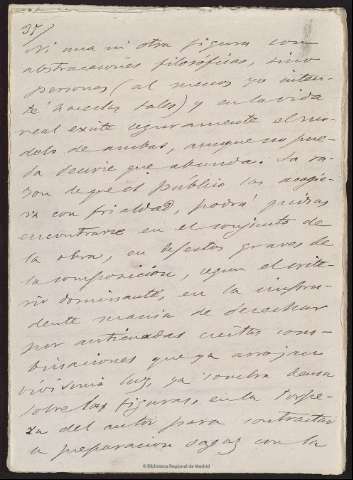 35
Ni una ni otra figura son
abstracciones filosóficas, sino
personas (al menos yo inten-
té hacerlas tales) y en la vida
real existe seguramente el mo-
delo de ambas, aunque no pue-
da decirse que abunda. La ra-
zon de que el público las acogie-
ra con frialdad, podrá quizás
encontrarse en el conjunto de
la obra, en defectos graves de
la composición, segun el crite-
rio dominante, en la impru-
dente manía de desechar
por anticuadas ciertas com-
binaciones que ya arrojan
vivísima luz, ya sombra densa
sobre las figuras, en la torpe-
za del autor para contrastar
la preparacion sagaz con la
© Biblioteca Regional de Madrid